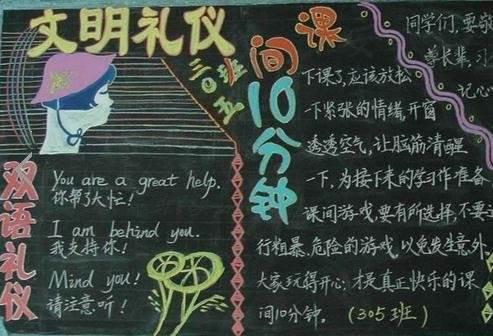 文明礼仪
三〇五班
双语礼仪
You are a great help.
你帮了大忙!
I am behind you.
我支持你!
Mind you!
请注意听!
课间10分钟
下课了,应该放松
一下紧张的情绪,开窗
透透空气,让脑筋清醒
一下,为接下来的学习作准备
课间游戏,要有所选择,不要进
行粗暴、危险的游戏,以免发生意外。
大家玩得开心,才是真正快乐的课
间10分钟。 (305班)
同学们,要敬
尊长辈,习
记心